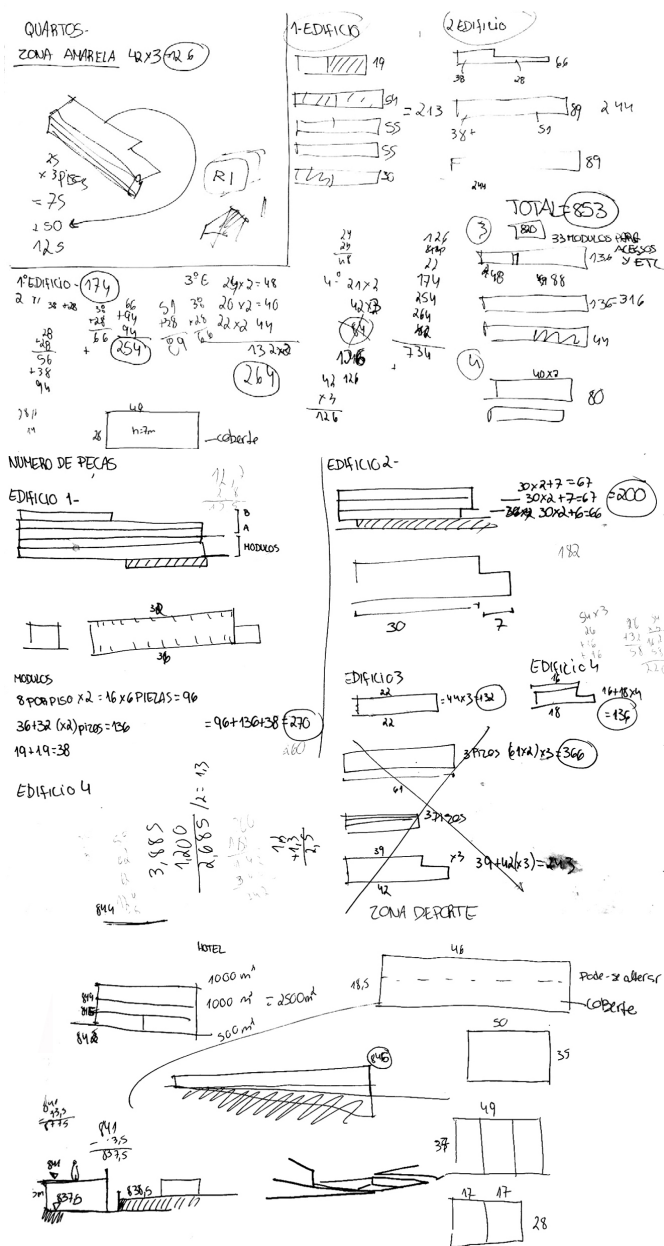 QUARTOS-
ZONA AMARELA 42x3=126
25
x 3 pisos
= 75
+50
125
R1
1-EDIFICIO
19
54
55
55
30
= 213
2 EDIFICIO
38 28 66
89 244
38+ 51
89
244
TOTAL=853
3
820
33 MODULOS PARA
ACESSOS
Y ETC
136
248 88
136=316
44
4
40x2
80
1º EDIFICIO - 174
38 +28
28
+28
56
+38
94
38
+28
66
66
+94
254
51
+38
89
38
+28
66
3º E 24x2=48
20x2=40
22x2 44
132x2
264
24
24
48
4º 21x2
42x3
84
126
42 126
x3
126
126
22
174
254
264
182
734
40
28 h=7m
coberte
NUMERO DE PEÇAS
EDIFICIO 1-
B
A
MODULOS
36
MODULOS
8 POR PISO x2 = 16 x 6 PIEZAS = 96
36+32 (x2) pizos = 136
19+19=38
= 96+136+38=270
260
EDIFICIO 2-
30x2+7=67
30x2+7=67
30x2+6=66
=200
182
30 7
EDIFICIO 3
22
= 44x3=132
22
EDIFICIO 4
16
18
16+18x4
= 136
3 PIZOS (61x2)x3=366
61
3 PIZOS
39
x3 39+42(x3)=243
42
ZONA DEPORTE
EDIFICIO 4
3,885
1,200
2,685 /2=1,3
1,2
+1,3
2,5
844
HOTEL
1000 m²
1000 m² = 2500m²
500m²
844
842
46
18,5
Pode-se alterar
coberte
50
35
845
841
13,5
841
- 3,5
837,5
841
837,5
838,5
49
37
17 17
28